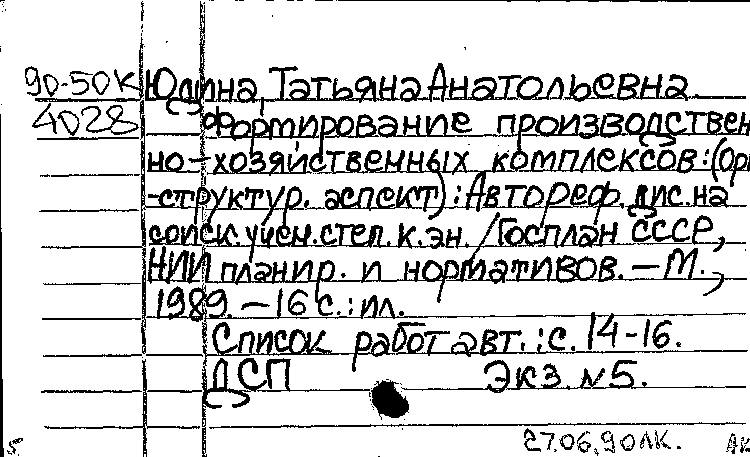 90-50К Юдина, Татьяна Анатольевна.
4028 Формирование производствен
но-хозяйственных комплексов: (Орг
-структур. аспект): Автореф. дис. на
соиск. учен. степ. к. эн. / Госплан СССР,
НИИ планир. и нормативов. – М.,
1989. – 16 с.: ил.
Список работ авт.: с. 14-16.
ДСП Экз. №5.
27.06.90 ЛК. АК